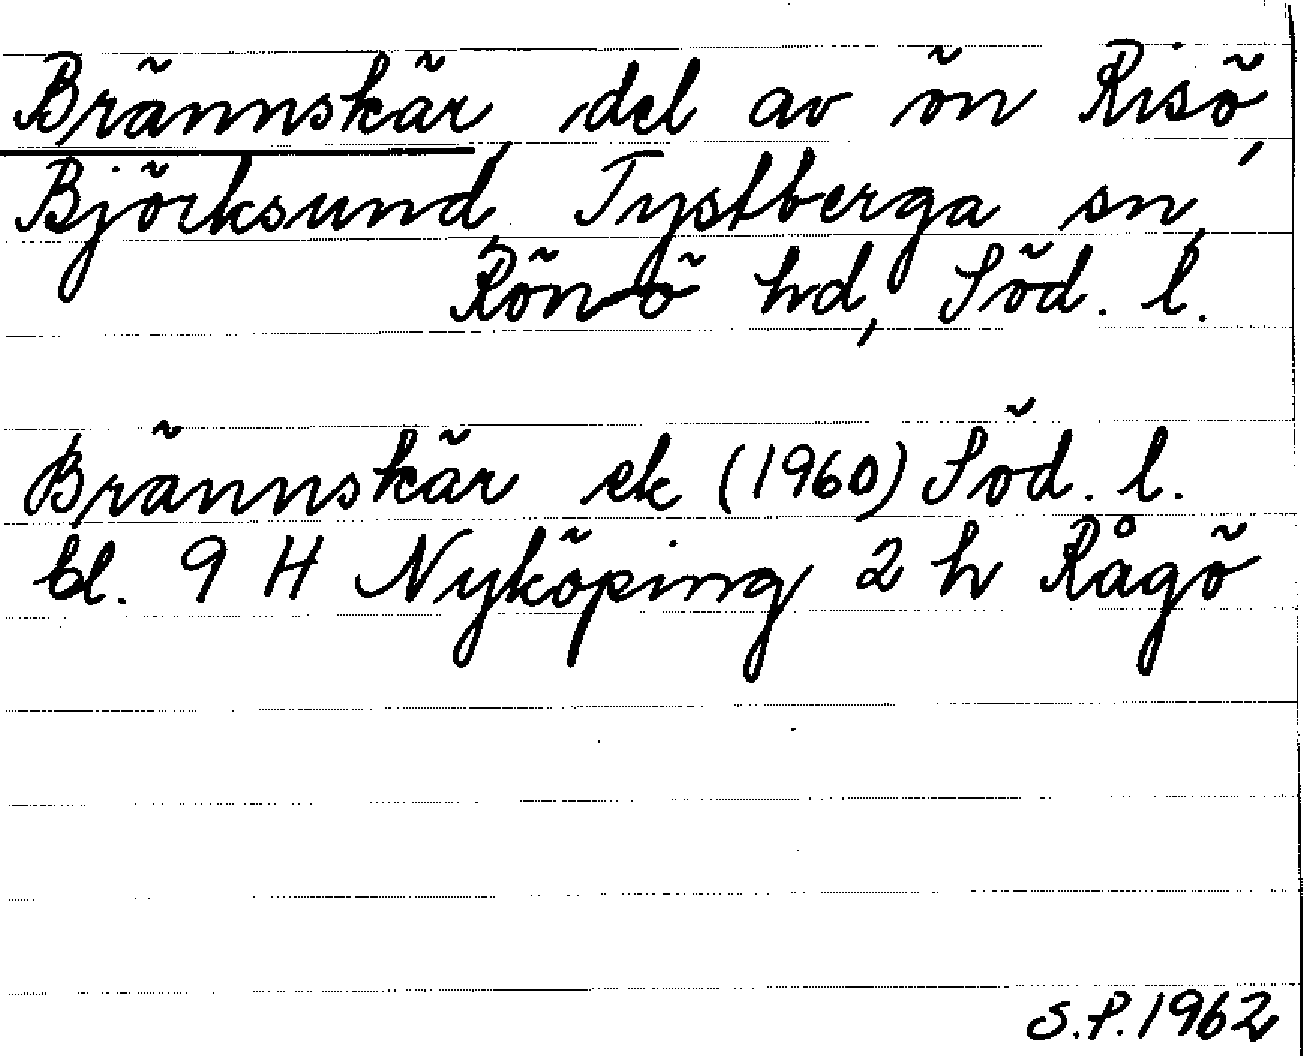 Brännskär, del av ön Risö,
Björksund, Tystberga sn,
Rönö hd, Söd. l.
Brännskär ek (1960) Söd. l.
bl. 9 H Nyköping 2 h Rågö
S.P. 1962